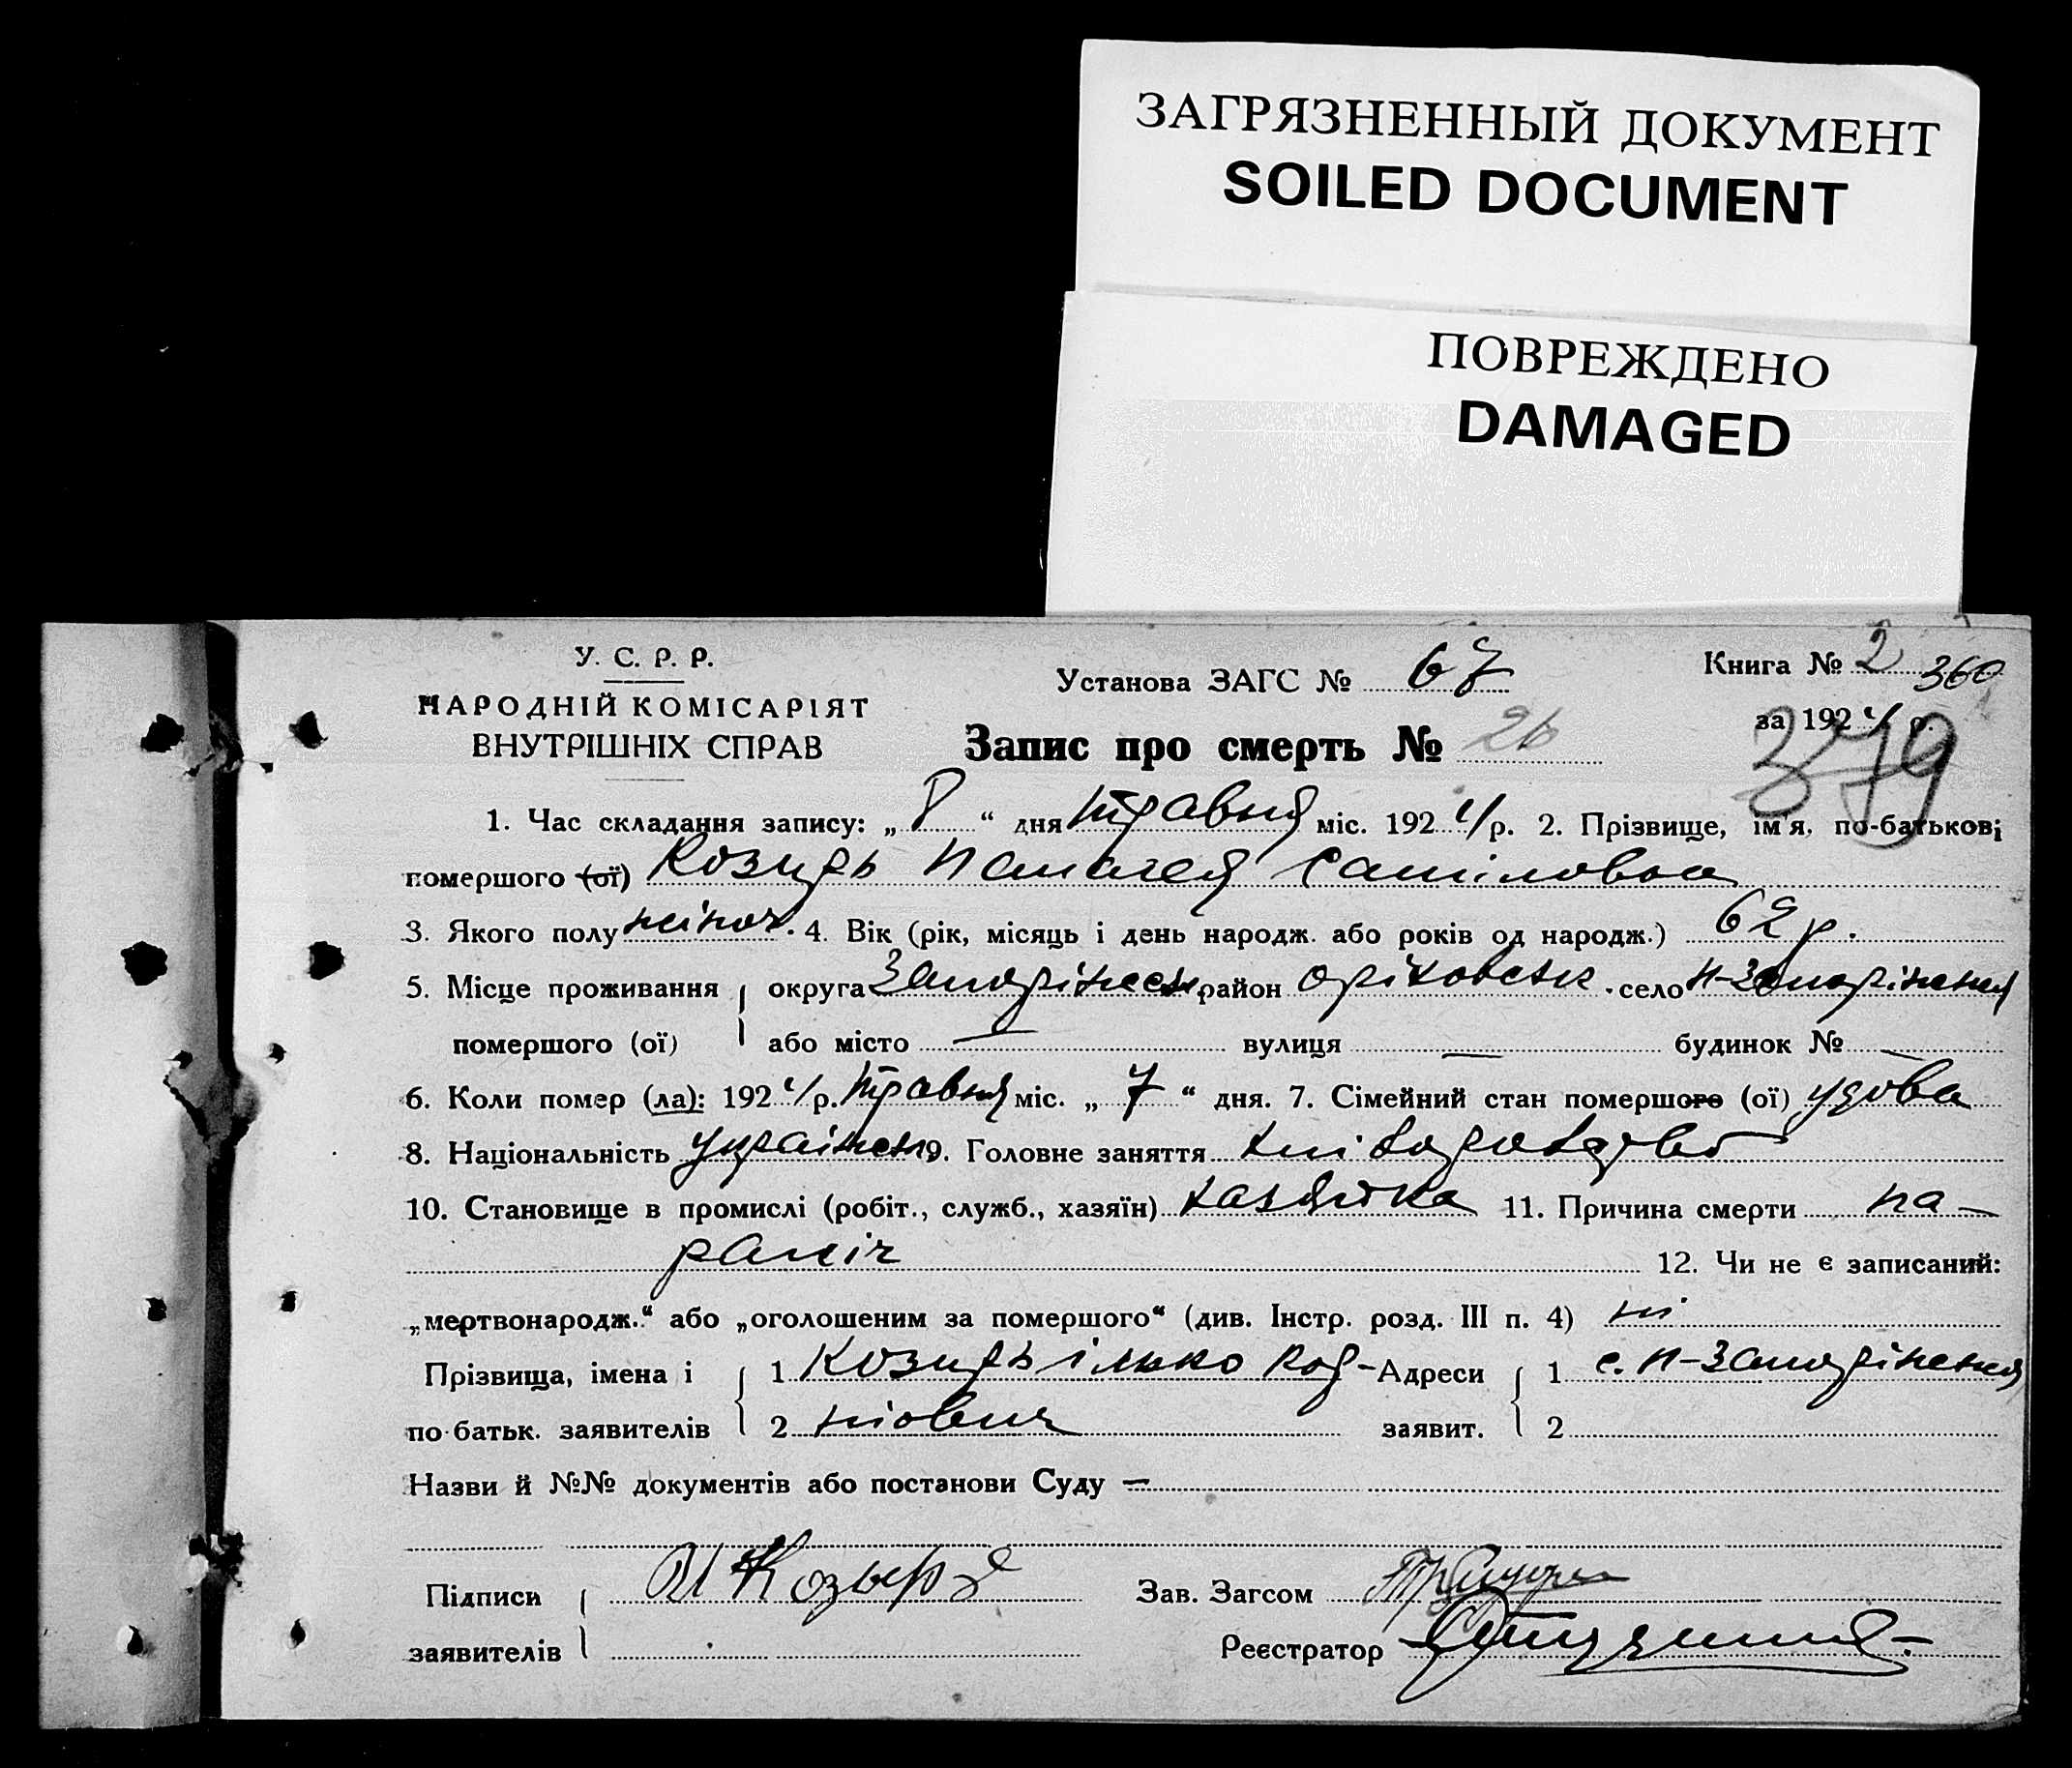 ЗАГРЯЗНЕННЫЙ ДОКУМЕНТ
SOILED DOCUMENT
ПОВРЕЖДЕНО
DAMAGED
У. С. Р. Р.
НАРОДНІЙ КОМІСАРІЯТ
ВНУТРІШНІХ СПРАВ
Установа ЗАГС № 67
Книга № 2 360
за 1924 р.
379
Запис про смерть № 26
1. Час складання запису: „ 8 “ дня травня міс. 1924 р. 2. Прізвище, ім'я, по-батькові
помершого (ої) Козирь Палагея
3. Якого полу жіноч. 4. Вік (рік, місяць і день народж. або років од народж.) 62 р.
5. Місце проживання округа район Оріховськ. село
помершого (ої) або місто — вулиця — будинок № —
6. Коли помер (ла): 1924 р. травня міс. „ 7 “ дня. 7. Сімейний стан помершого (ої) удова
8. Національність 9. Головне заняття
10. Становище в промислі (робіт., служб., хазяїн) хазяйка 11. Причина смерти па-
раліч 12. Чи не є записаний:
„мертвонародж.“ або „оголошеним за помершого“ (див. Інстр. розд. III п. 4) ні
Прізвища, імена і 1 Козирь Ілько Род- Адреси 1
по-батьк. заявителів 2 іонович заявит. 2
Назви й №№ документів або постанови Суду —
Підписи И Козырь Зав. Загсом
заявителів Реєстратор